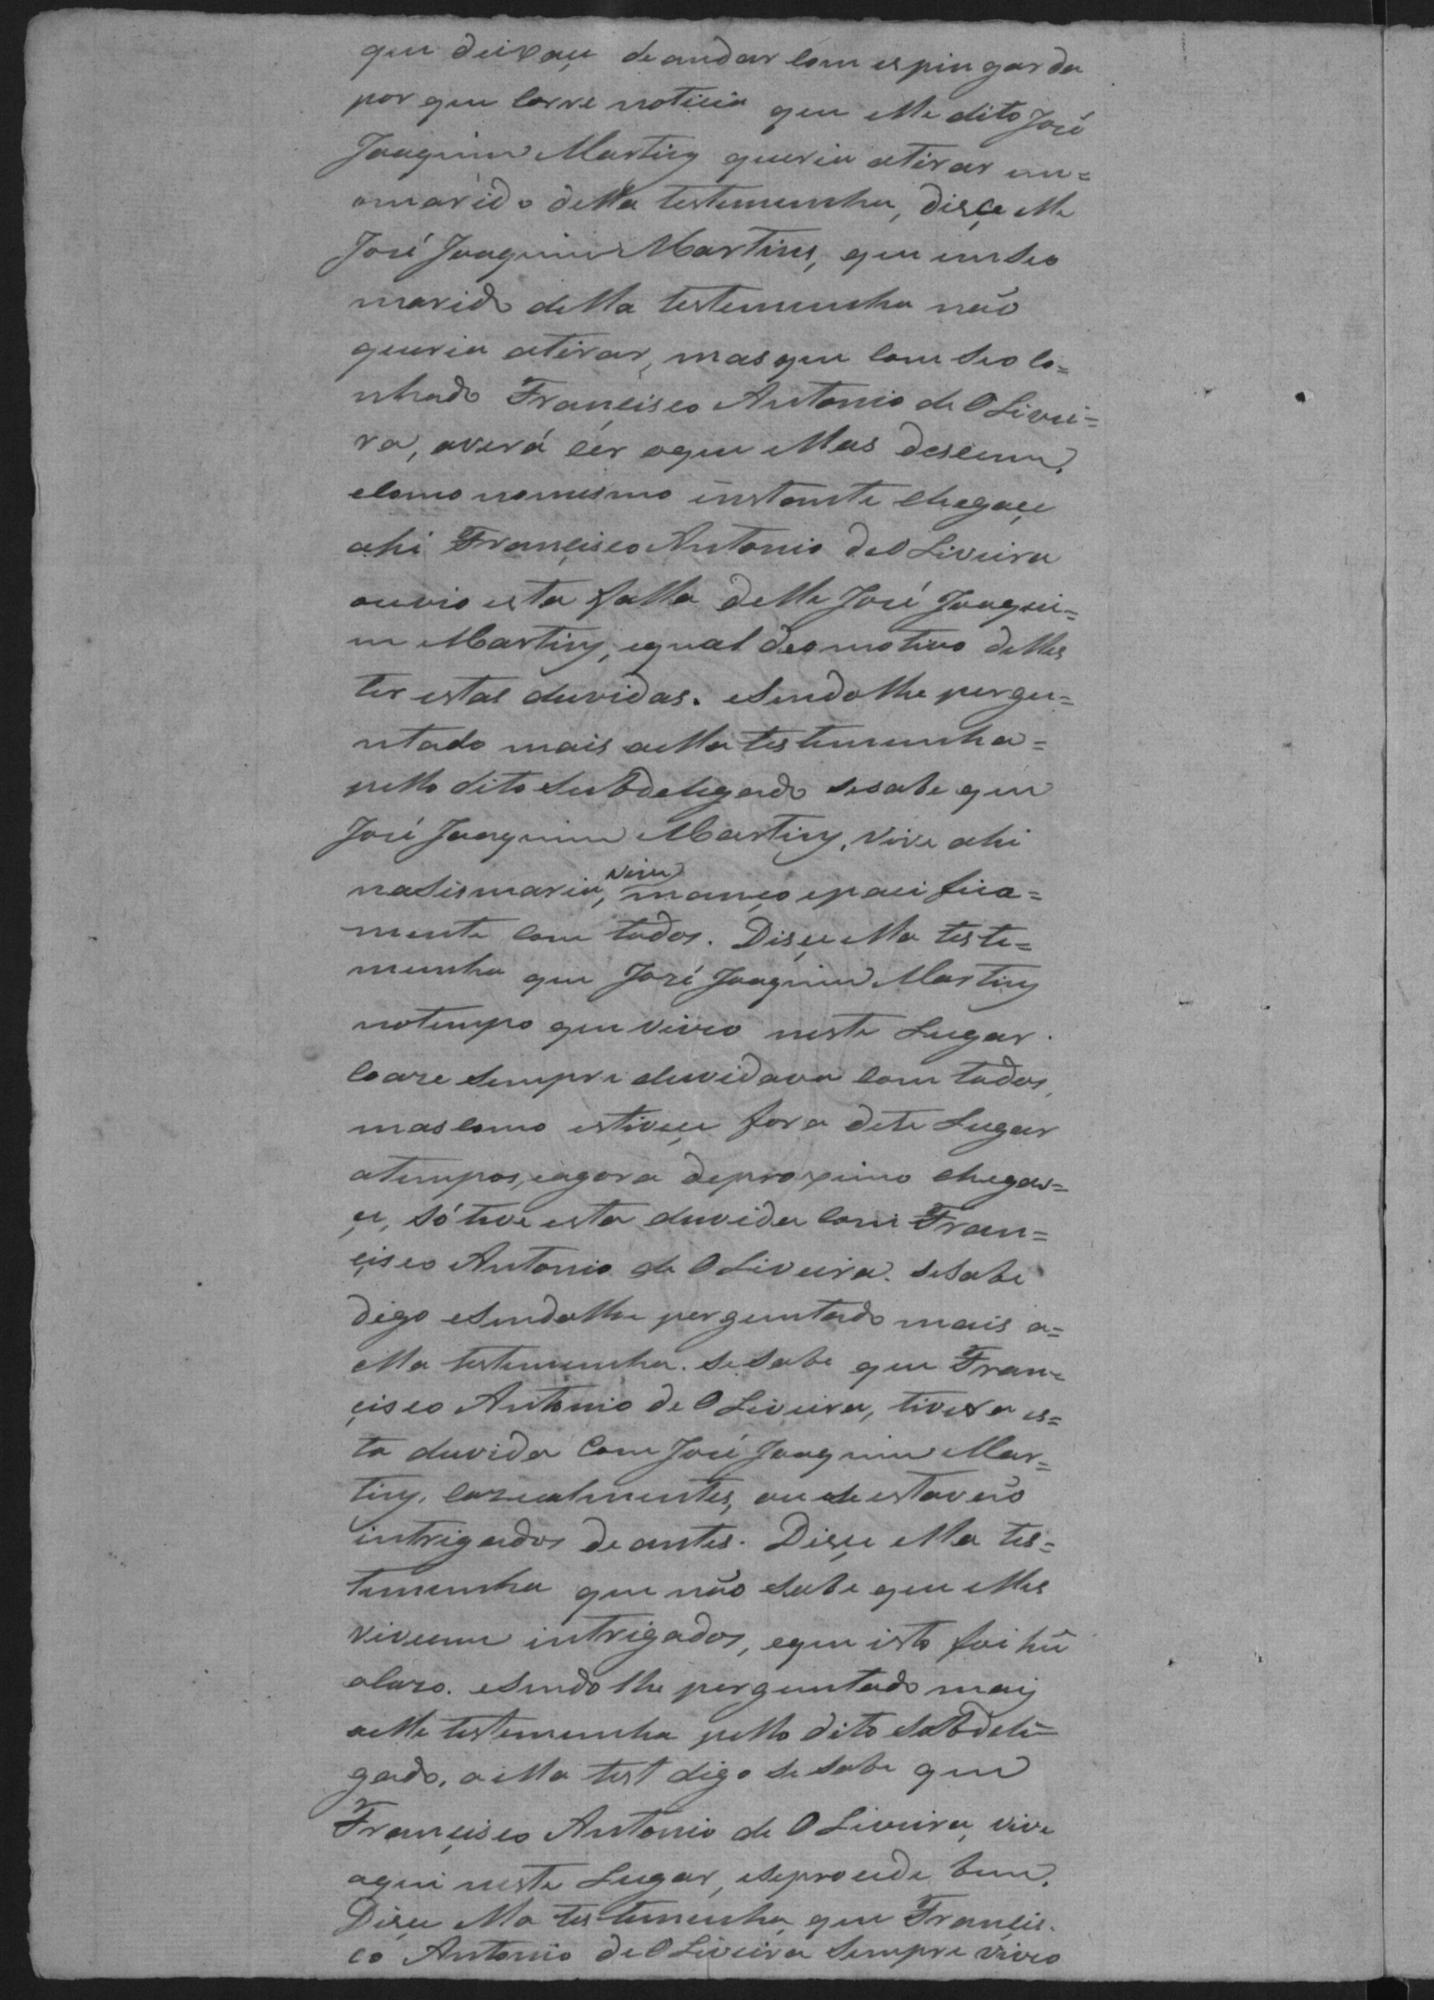 que deixaçe de andar com espingarda
por que corre noticia que elle dito José
Joaquim Martins queria atirar em=
o marido della testemunha, disçe elle
José Joaquim Martins, que em seo
marido della testemunha não
queria atirar, mas que com seo co=
nhado Françisco Antonio de OLivei=
ra, averá cér o que Mas descem.
e como no mesmo instante chegaçe
ahi Françisco Antonio de OLiveira
ouvio esta falla delle José Joaqui=
m Martins, e qual deo motivo delles
ter estas duvidas. e sendo lhe pergu=
ntado mais a ella testemunha=
pello dito SubDelegado se sabe que
José Joaquim Martins, vive ahi
na Sismaria, viveo manço e paçifica=
mente com todos. Disçe ella teste=
munha que José Joaquim Martins
no tempo que viveo neste Lugar
coaze sempre duvidava com todos,
mas como estiveçe fora deste Lugar
a tempos, e agora de proximo chegas=
çe, só teve esta duvida com Fran=
çisco Antonio de OLiveira. se sabe
digo e sendo lhe perguntado mais a=
ella testemunha. se sabe que Fran=
çisco Antonio de OLiveira, tivera es=
ta duvida com José Joaquim Mar=
tins, cazealmentes, ou se estavão
intrigados de antes. Disçe ella tes=
temunha que não sabe que elles
viveem intrigados, e que isto foi hũ
a cazo. e sendo lhe perguntado mais
a elle testemunha pello dito SubDele=
gado, a ella test digo se sabe que
Françisco Antonio de OLiveira, vive
aqui neste Lugar, e se procede bem.
Disçe ella testemunha que Françis=
co Antonio de OLiveira sempre viveo